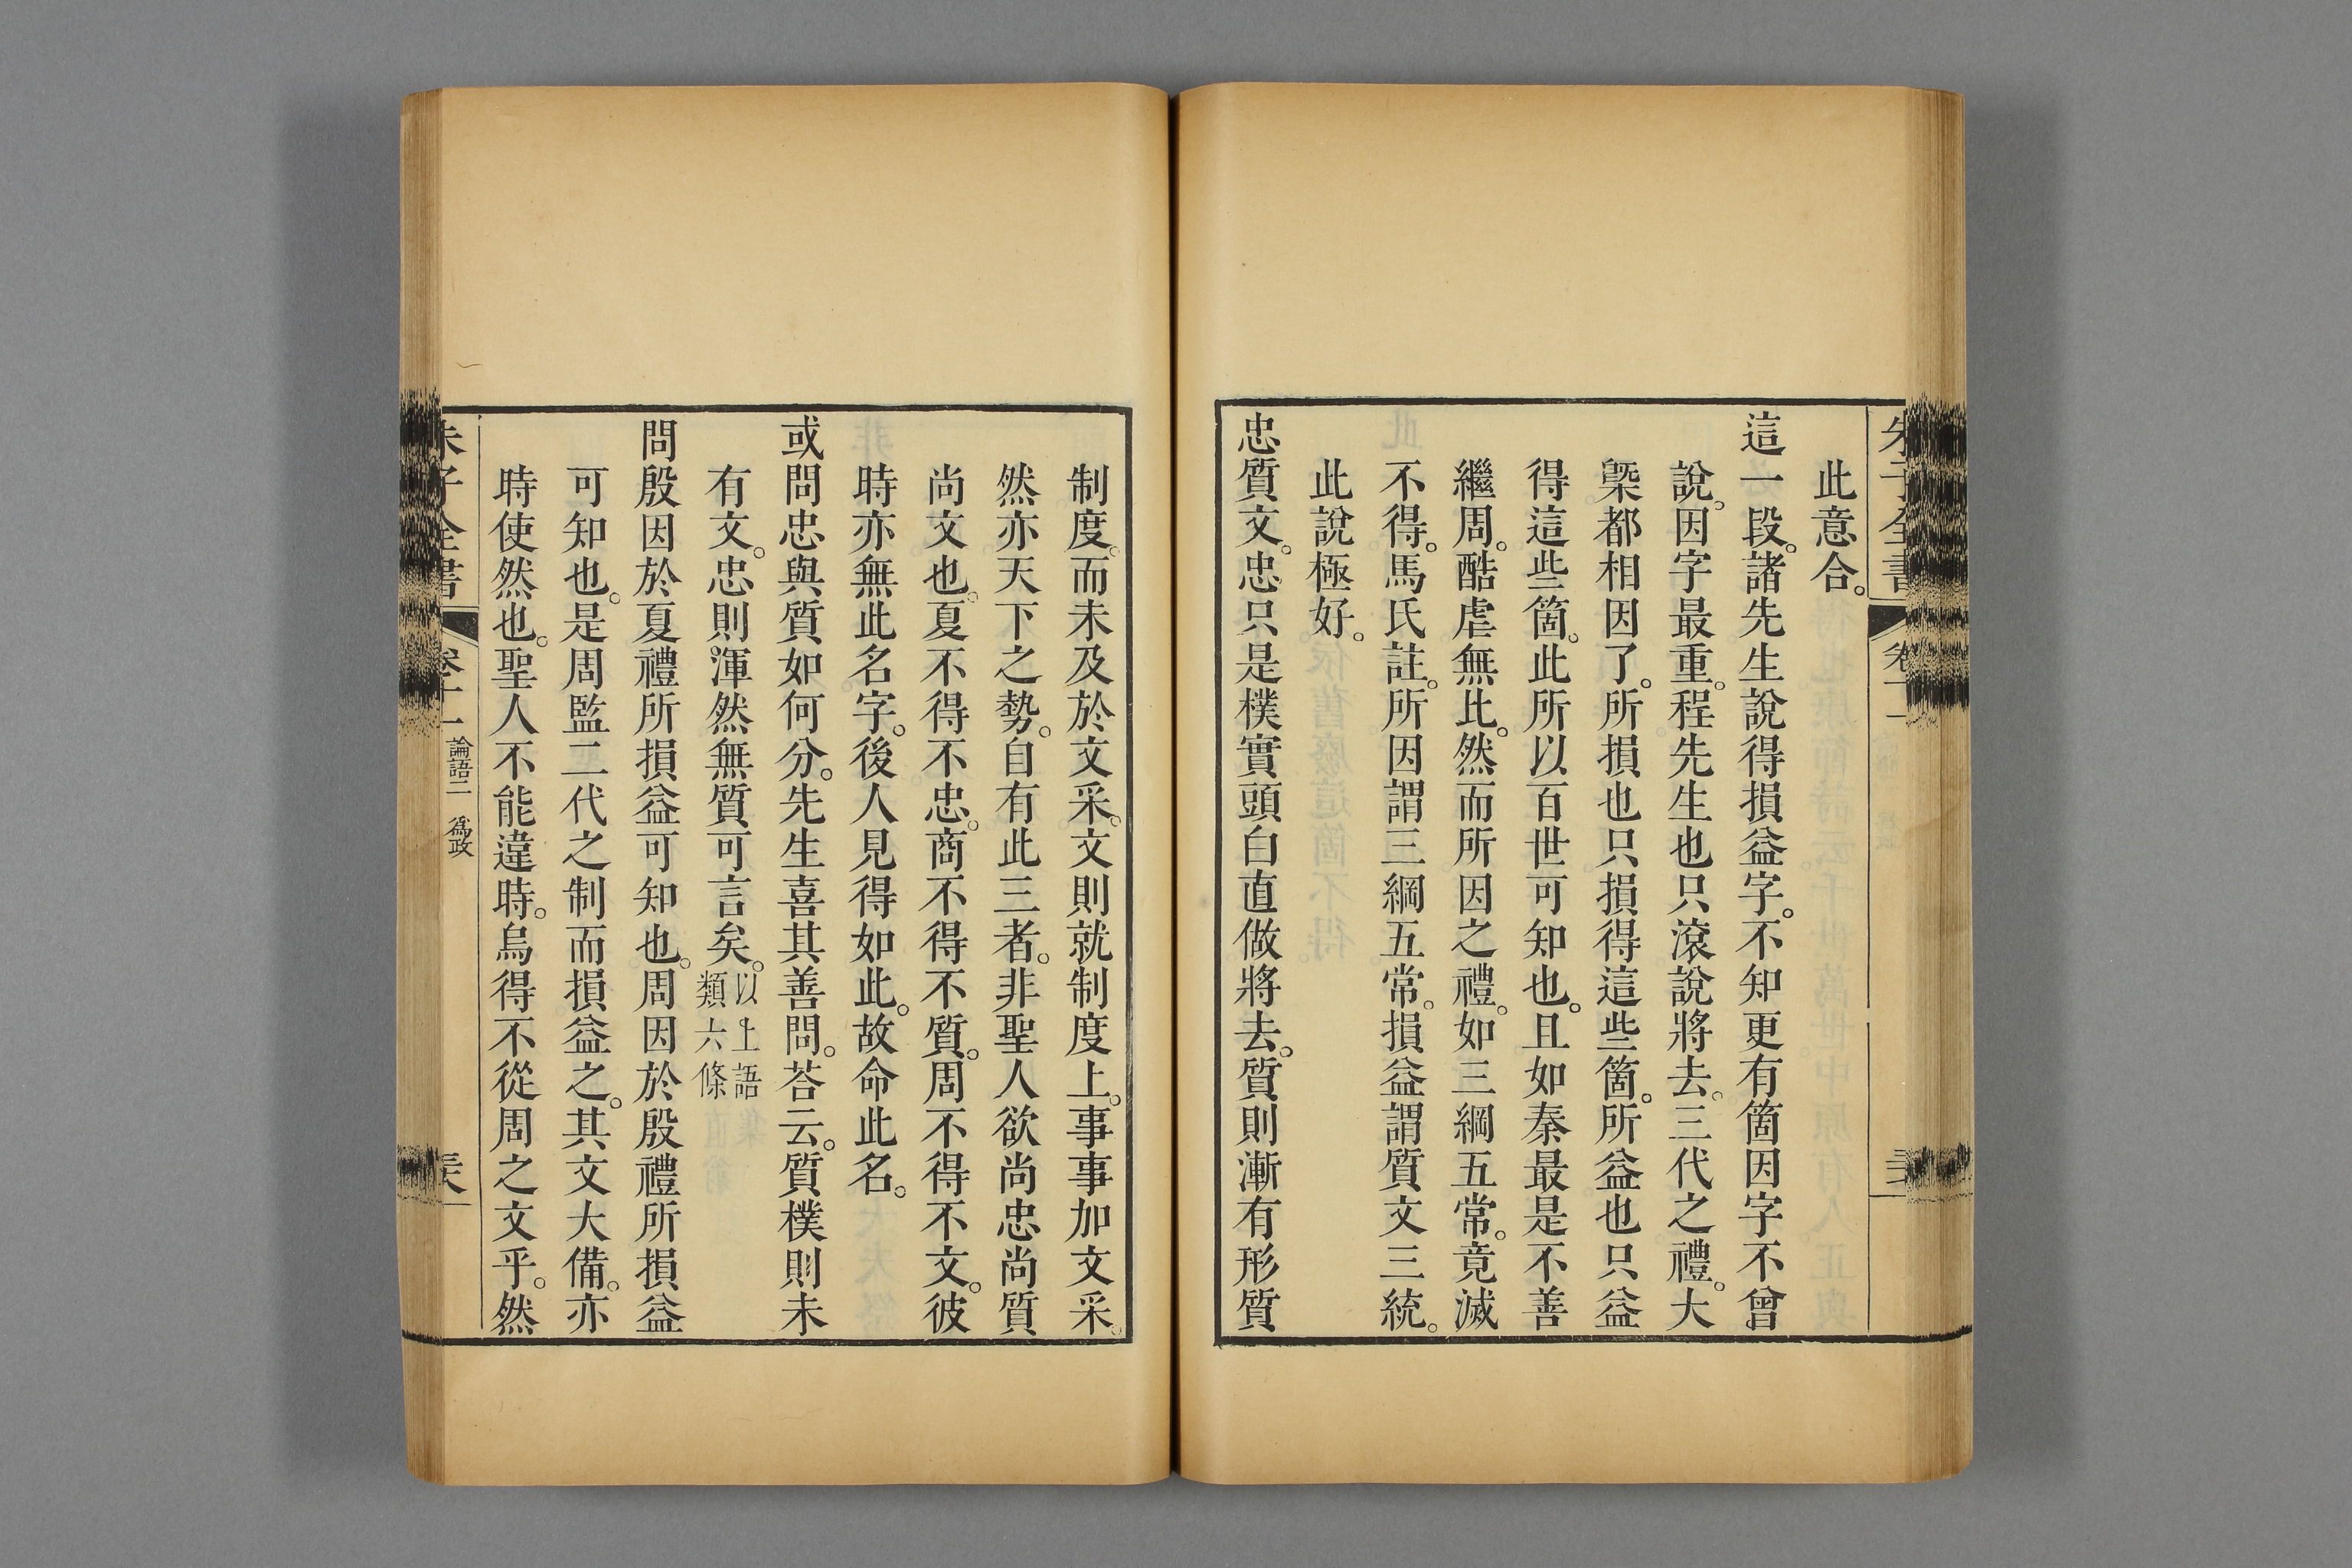 此意合。
這一段。諸先生說得損益字。不知更有箇因字不曾
說。因字最重。程先生也只滾說將去。三代之禮。大
槩都相因了。所損也只損得這些箇。所益也只益
得這些箇。此所以百世可知也。且如秦最是不善
繼周。酷虐無比。然而所因之禮。如三綱五常。竟滅
不得。馬氏註。所因謂三綱五常。損益謂質文三統。
此說極好。
忠質文。忠只是樸實頭白直做將去。質則漸有形質
制度。而未及於文采。文則就制度上。事事加文采。
然亦天下之勢。自有此三者。非聖人欲尚忠尚質
尚文也。夏不得不忠。商不得不質。周不得不文。彼
時亦無此名字。後人見得如此。故命此名。
或問忠與質如何分。先生喜其善問。荅云。質樸則未
有文。忠則渾然無質可言矣。以上語類六條
問殷因於夏禮所損益可知也。周因於殷禮所損益
可知也。是周監二代之制而損益之。其文大備。亦
時使然也。聖人不能違時。烏得不從周之文乎。然
朱子全書 卷十一 論語二 爲政